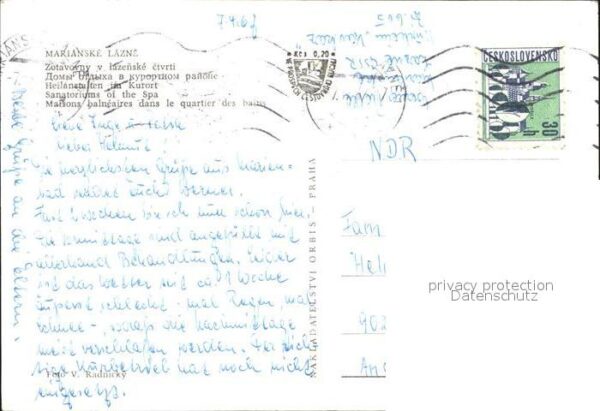 7.4.65
MARIÁNSKÉ LÁZNĚ
Zotavovny v lázeňské čtvrti
Домы отдыха в курортном районе
Heilanstalten im Kurort
Sanatoriums of the Spa
Maisons balnéaires dans le quartier des bains
Liebe Inge
lieber Helmut!
Die herzlichsten Grüße aus Marien-
bad sendet Euch Werner.
Fast 2 Wochen bin ich nun schon hier.
Die Vormittage sind angefüllt mit
allerhand Behandlungen. Leider
ist das Wetter seit ca. 1 Woche
äußerst schlecht - mal Regen, mal
Schnee -, so daß die Nachmittage
meist verschlafen werden. Der rich-
tige Kurbetrieb hat noch nicht
eingesetzt.
Foto V. Radnický
Grüße an die Eltern.
NAKLADATELSTVÍ ORBIS - PRAHA
KČS 0,20
ČESKOSLOVENSKO
30 h
NDR
Fam
Hel
902
privacy protection
Datenschutz